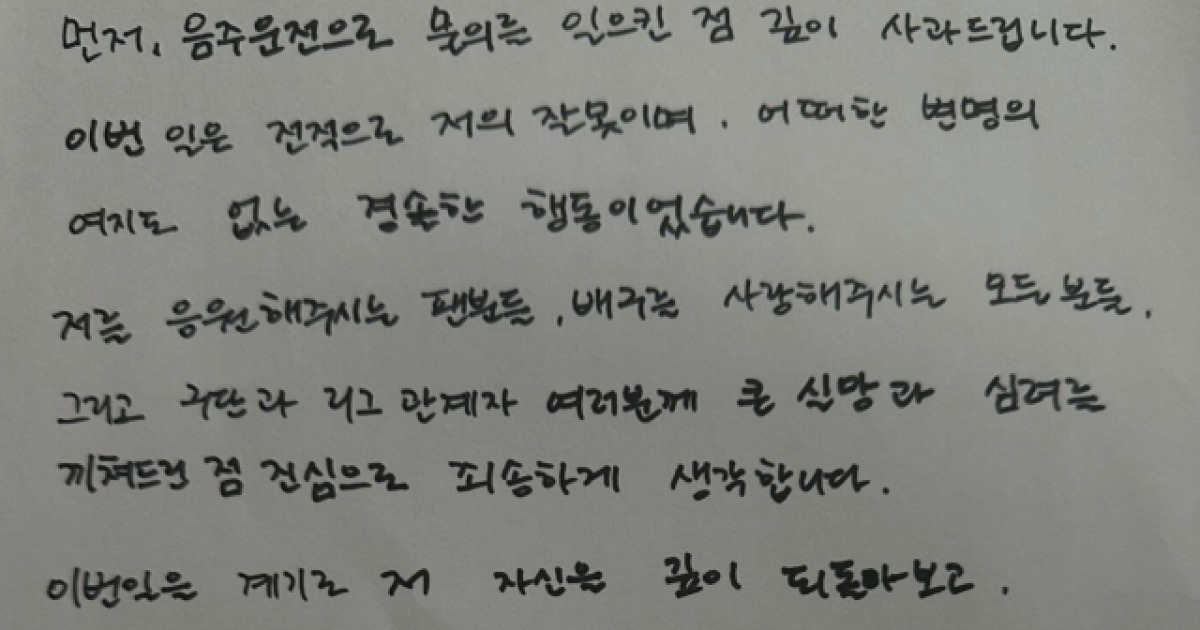 먼저, 음주운전으로 물의를 일으킨 점 깊이 사과드립니다.
이번 일은 전적으로 저의 잘못이며, 어떠한 변명의
여지도 없는 경솔한 행동이었습니다.
저를 응원해주시는 팬분들, 배구를 사랑해주시는 모든분들,
그리고 구단과 리그 관계자 여러분께 큰 실망과 심려를
끼쳐드린 점 진심으로 죄송하게 생각합니다.
이번일을 계기로 저 자신을 깊이 되돌아보고,